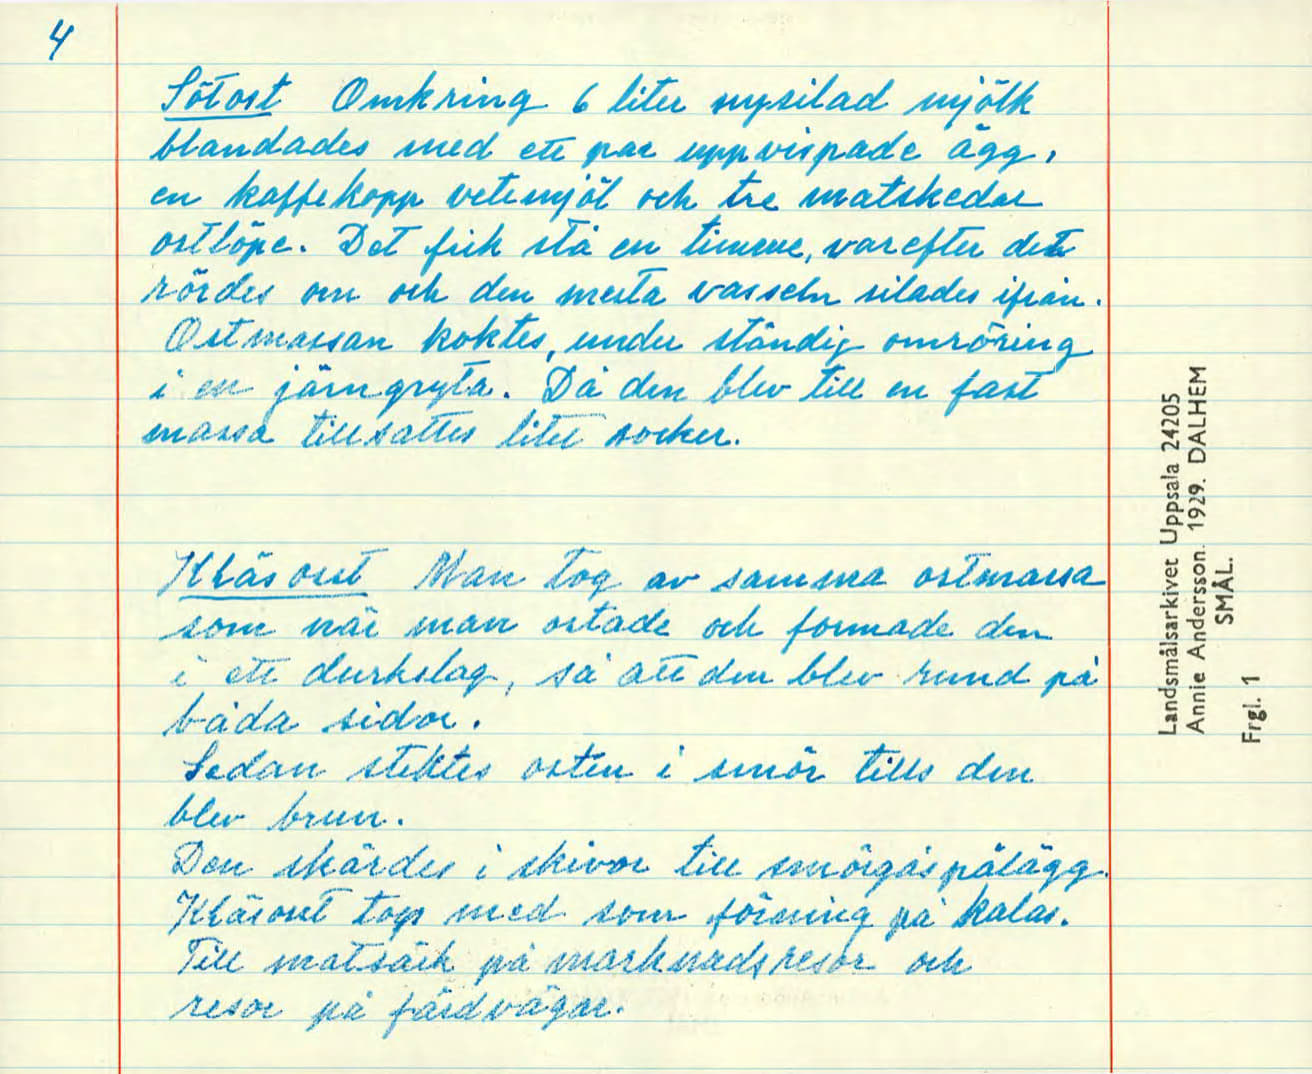 4
Sötost Omkring 6 liter nysilad mjölk
blandades med ett par uppvispade ägg,
en kaffekopp vetemjöl och tre matskedar
ostlöpe. Det fick stå en timme, varefter det
rördes om och den mesta vasseln silades ifrån.
Ostmassan koktes, under ständig omröring
i en järngryta. Då den blev till en fast
massa tillsattes litet socker.
Kläsost Man tog av samma ostmassa
som när man ostade och formade den
i ett durkslag, så att den blev rund på
båda sidor.
Sedan stektes osten i smör tills den
blev brun.
Den skärdes i skivor till smörgåspålägg.
Kläsost togs med som förning på kalas.
Till matsäck på marknadsresor och
resor på färdvägar.
Landsmålsarkivet Uppsala 24205
Annie Andersson. 1929. DALHEM
SMÅL.
Frgl. 1